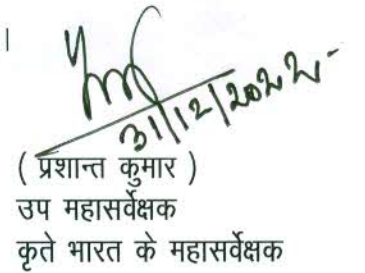 31/12/2022
( प्रशान्त कुमार )
उप महासर्वेक्षक
कृते भारत के महासर्वेक्षक